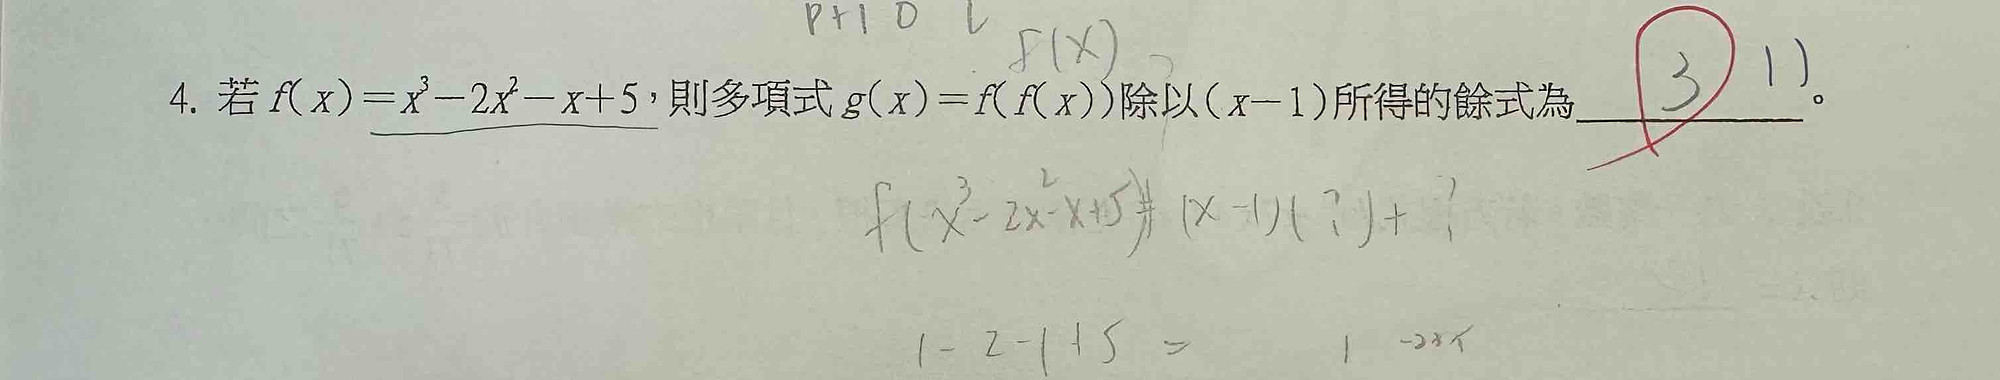 p+1 0
f(x)
4. 若 f(x)=x³-2x²-x+5，則多項式 g(x)=f(f(x))除以(x-1)所得的餘式為 3 11。
f(x³-2x²-x+5) (x-1)(?)+?
1-2-1+5=